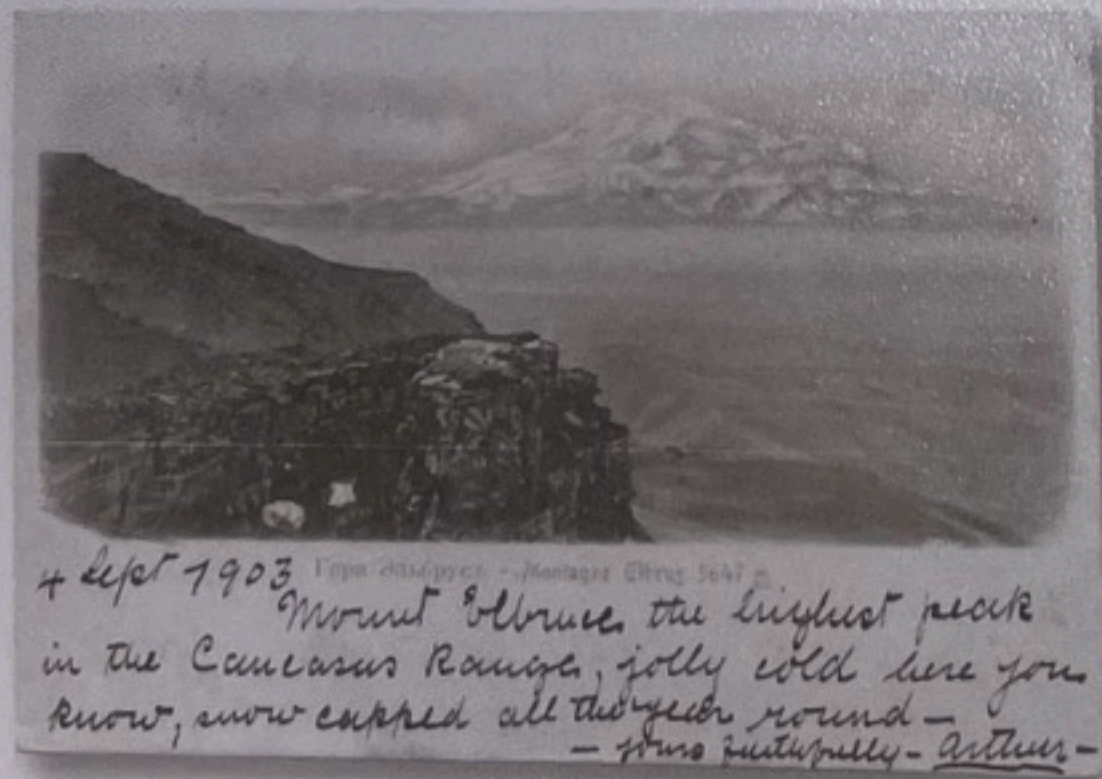 4 Sept 1903
Гора Эльбрусъ - Montagne Elbrus 5647 m
Mount Elbruce the highest peak
in the Caucasus Range, jolly cold here you
know, snow capped all the year round —
— yours faithfully — Arthur —